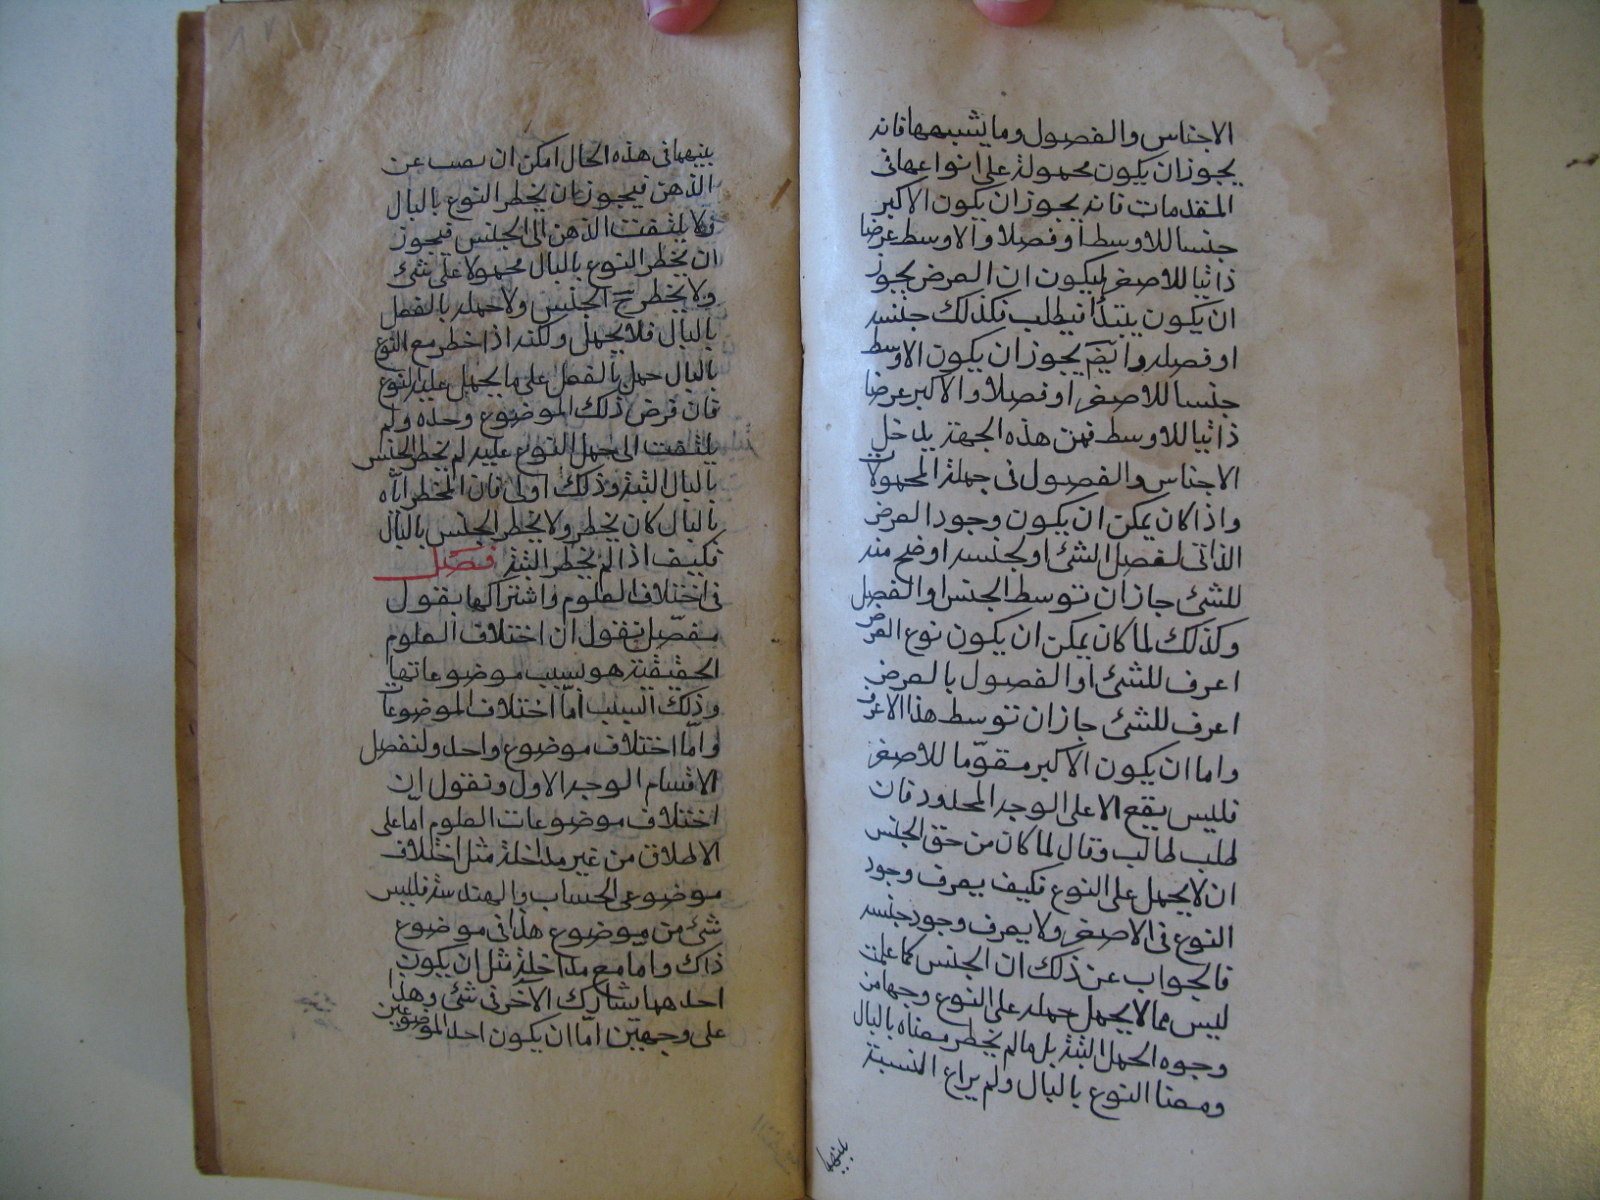 الاجناس والفصول وما يشبهها فانه
يجوز ان يكون محمولة على انواعها فى
المقدمات فانه يجوز ان يكون الاكبر
جنسا للاوسط او فصلا والاوسط عرضا
ذاتيا للاصغر ليكون ان العرض يجوز
ان يكون يبتدأ فيطلب فكذلك جنسه
او فصله وايضَ يجوز ان يكون الاوسط
جنسا للاصغر او فصلا والاكبر عرضا
ذاتيا للاوسط فمن هذه الجهة يدخل
الاجناس والفصول فى جملة المحمولات
واذا كان يمكن ان يكون وجود العرض
الذاتى لفصل الشئ او لجنسه اوضح منه
للشئ جاز ان توسط الجنس او الفصل
وكذلك لما كان يمكن ان يكون نوع العرض
اعرف للشئ او الفصول بالعرض
اعرف للشئ جاز ان توسط هذا الاعرف
واما ان يكون الاكبر مقوّما للاصغر
فليس يقع الا على الوجه المحدود فان
طلب طالب وقال لما كان من حق الجنس
ان لا يحمل على النوع فكيف يعرف وجود
النوع فى الاصغر ولا يعرف وجود جنسه
فالجواب عن ذلك ان الجنس كما علمت
ليس مما لا يحمل حمله على النوع وجها من
وجوه الحمل البتة بل ما لم يخطر معناه بالبال
ومعنا النوع بالبال ولم يراع النسبة
بينهما
بينهما فى هذه الحال امكن ان يعب عن
الذهن فيجوز ان يخطر النوع بالبال
ولا يلتفت الذهن الى الجنس فيجوز
ان يخطر النوع بالبال محمولا على شئ
ولا يخطر ح الجنس ولا حمله بالفعل
بالبال فلا يحمل ولكنه اذا خطر مع النوع
بالبال حمل بالفعل على ما يحمل عليه النوع
فان فرض ذلك الموضوع وحده ولم
يلتفت الى حمل النوع عليه لم يخطر الجنس
بالبال البتة وذلك اولى فان المخطر اياه
بالبال كان يخطر ولا يخطر الجنس بالبال
فكيف اذا لم يخطر البتة فصل
فى اختلاف العلوم واشتراكها بقول
مفصّل نقول ان اختلاف العلوم
الحقيقية هو بسبب موضوعاتها
وذلك السبب امّا اختلاف الموضوعات
وامّا اختلاف موضوع واحد ولنفصل
الاقسام الوجه الاول ونقول ان
اختلاف موضوعات العلوم اما على
الاطلاق من غير مداخلة مثل اختلاف
موضوعى الحساب والهندسة فليس
شئ من موضوع هذا فى موضوع
ذاك واما مع مداخلة مثل ان يكون
احدهما يشارك الآخر فى شئ وهذا
على وجهين امّا ان يكون احد الموضوعين